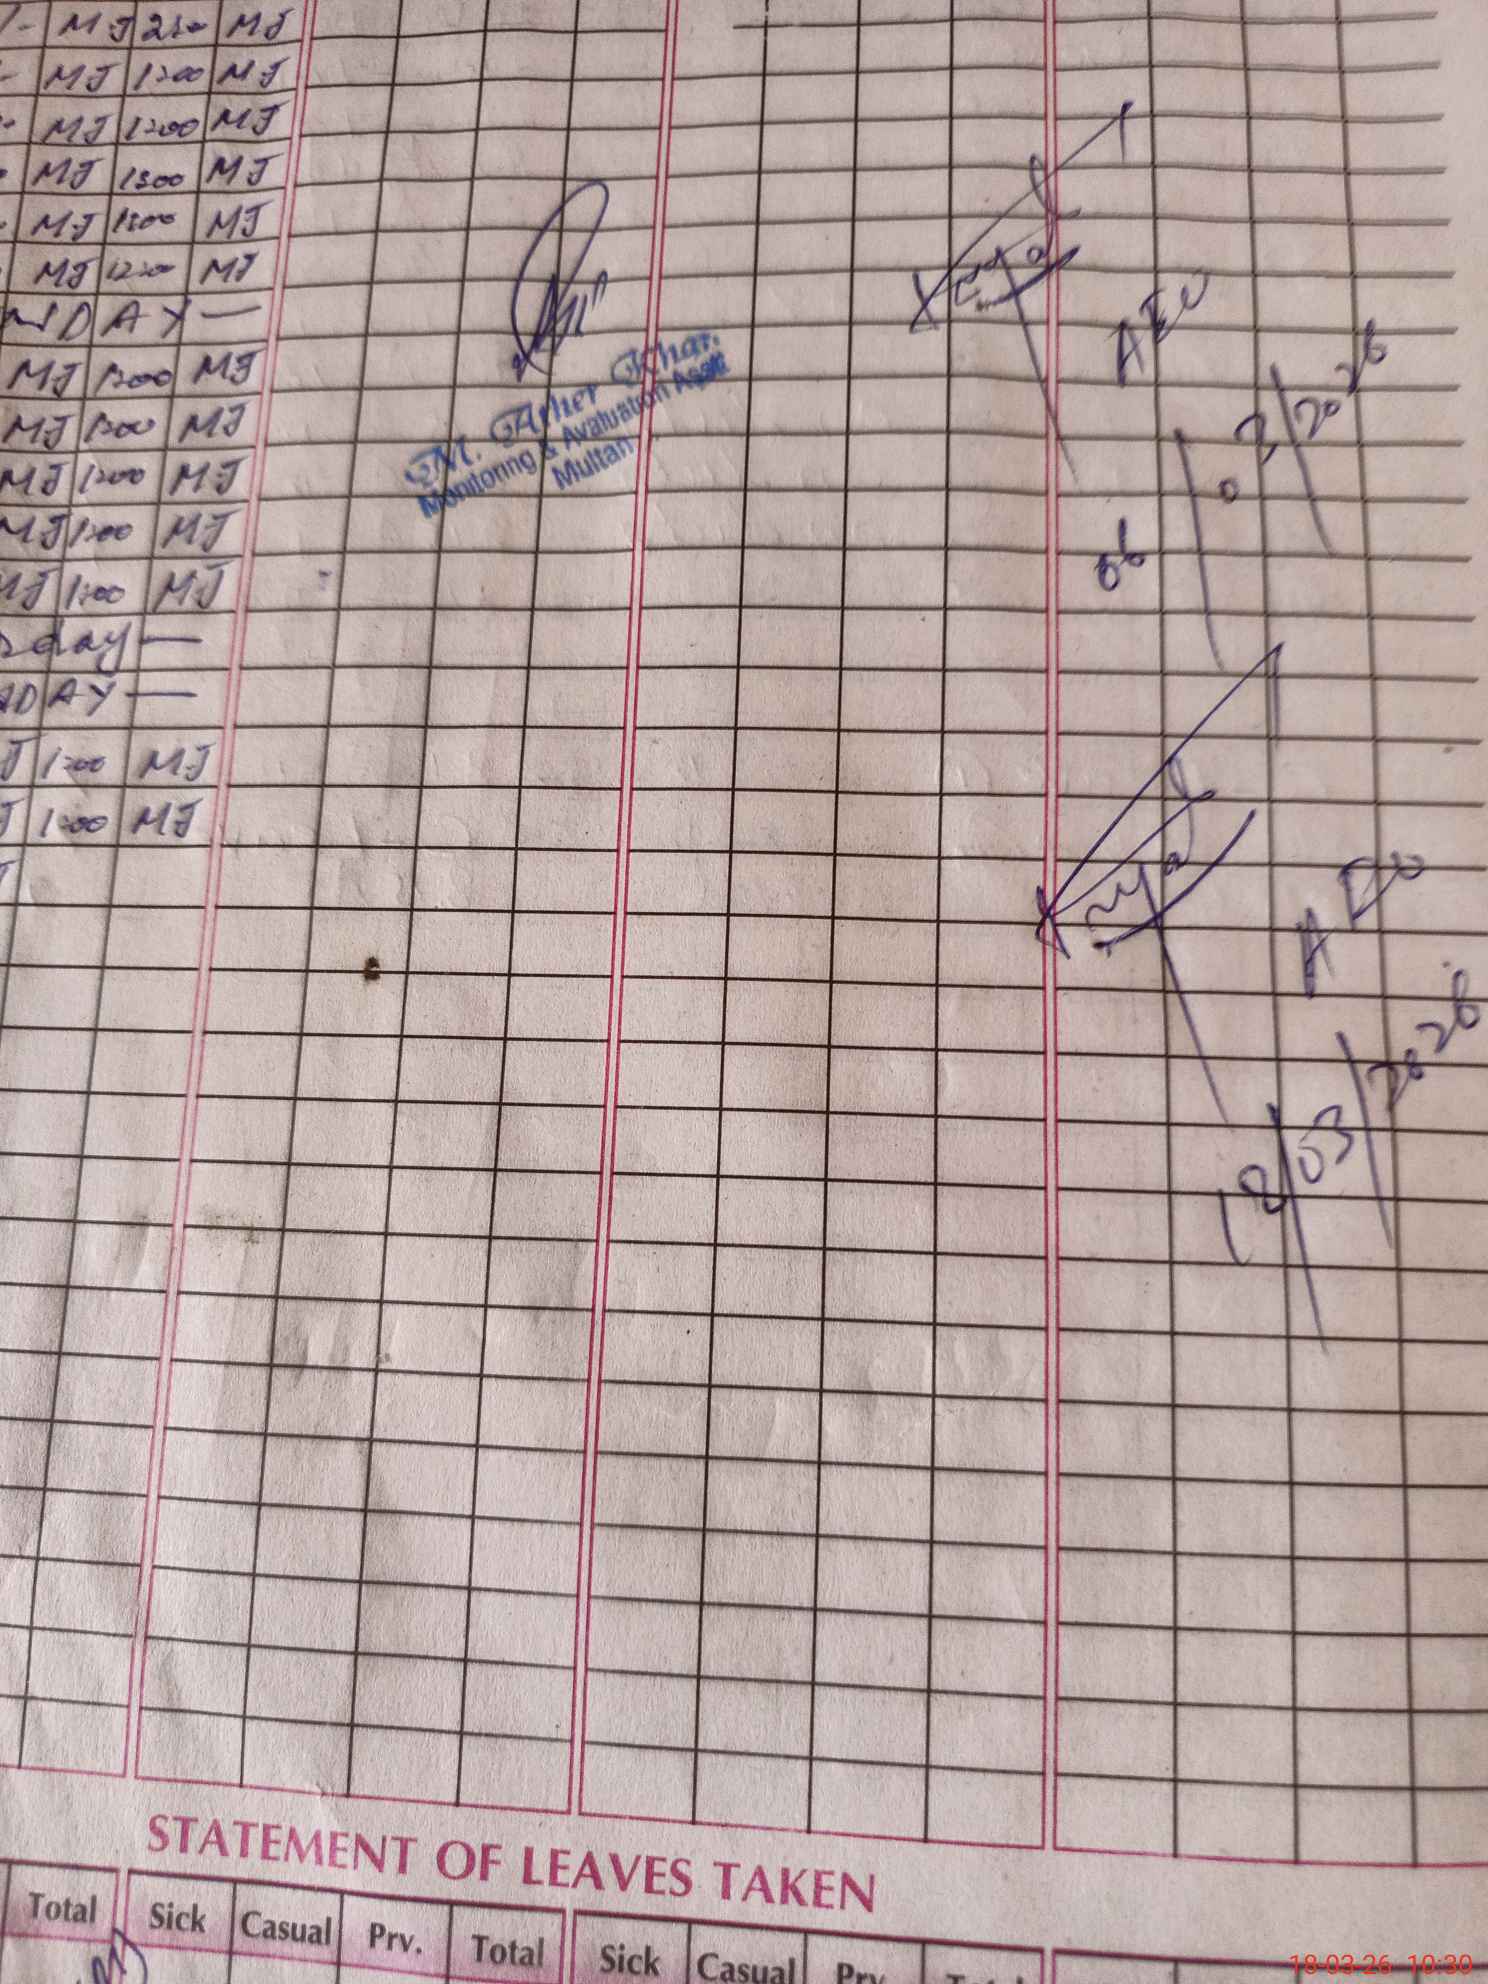 MJ 230 MJ
MJ 1200 MJ
MJ 1200 MJ
MJ 1300 MJ
MJ 1300 MJ
MJ 1200 MJ
DAY —
MJ 1300 MJ
MJ 1300 MJ
MJ 1200 MJ
MJ 1200 MJ
MJ 1200 MJ
day —
DAY —
J 1200 MJ
J 1200 MJ
M. Ather
Monitoring & Avaluation Asstt
Multan
AEO
06/03/2026
AEO
18/03/2026
STATEMENT OF LEAVES TAKEN
Total Sick Casual Prv. Total Sick Casual Prv. Total
18-03-26 10:30